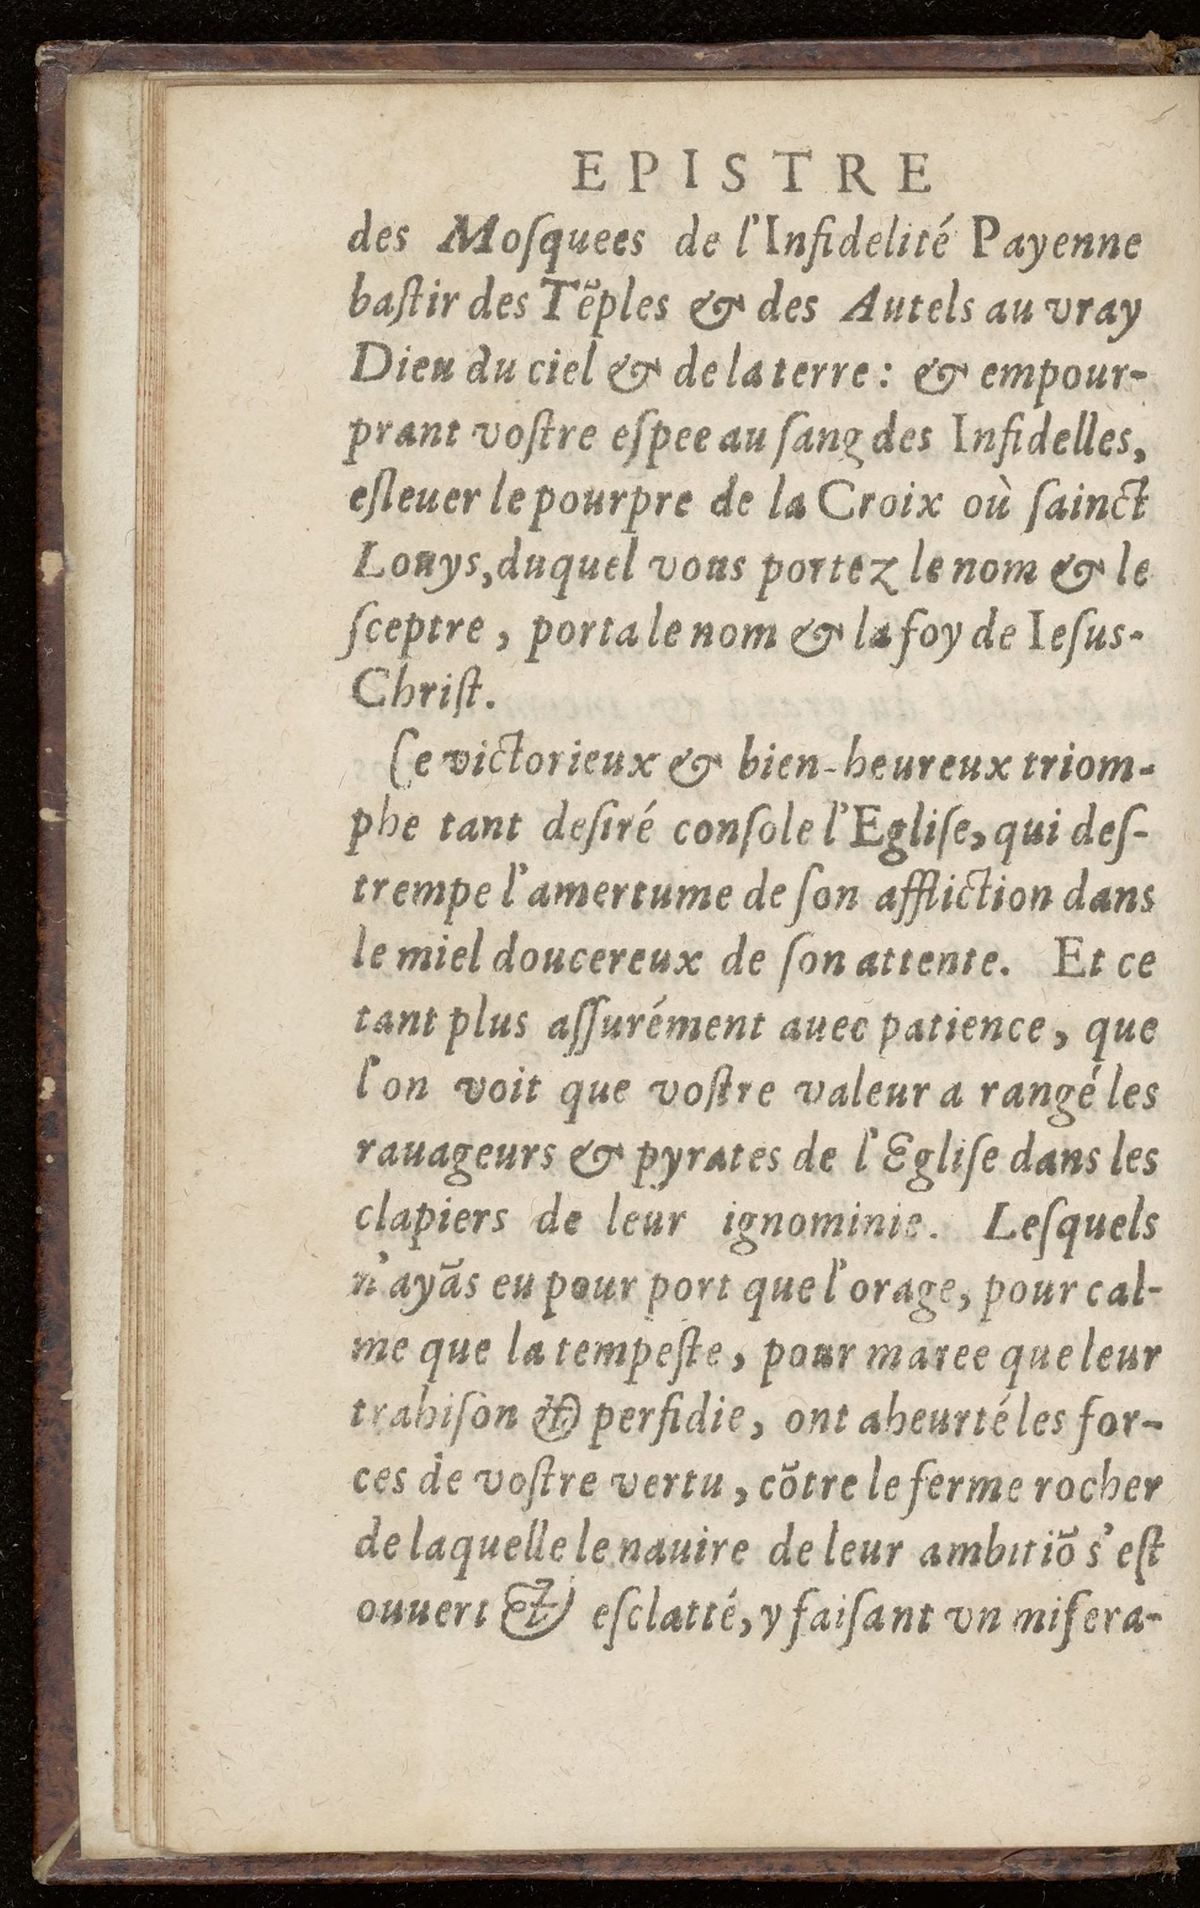 EPISTRE
des Mosquees de l'Infidelité Payenne
bastir des Tẽples & des Autels au vray
Dieu du ciel & de la terre : & empour-
prant vostre espee au sang des Infidelles,
esleuer le pourpre de la Croix où sainct
Louys, duquel vous portez le nom & le
sceptre, porta le nom & la foy de Iesus-
Christ.
Ce victorieux & bien-heureux triom-
phe tant desiré console l'Eglise, qui des-
trempe l'amertume de son affliction dans
le miel doucereux de son attente. Et ce
tant plus assurément auec patience, que
l'on voit que vostre valeur a rangé les
rauageurs & pyrates de l'Eglise dans les
clapiers de leur ignominie. Lesquels
n'ayãs eu pour port que l'orage, pour cal-
me que la tempeste, pour maree que leur
trahison & perfidie, ont aheurté les for-
ces de vostre vertu, cõtre le ferme rocher
de laquelle le nauire de leur ambitiõ s'est
ouuert & esclatté, y faisant vn misera-